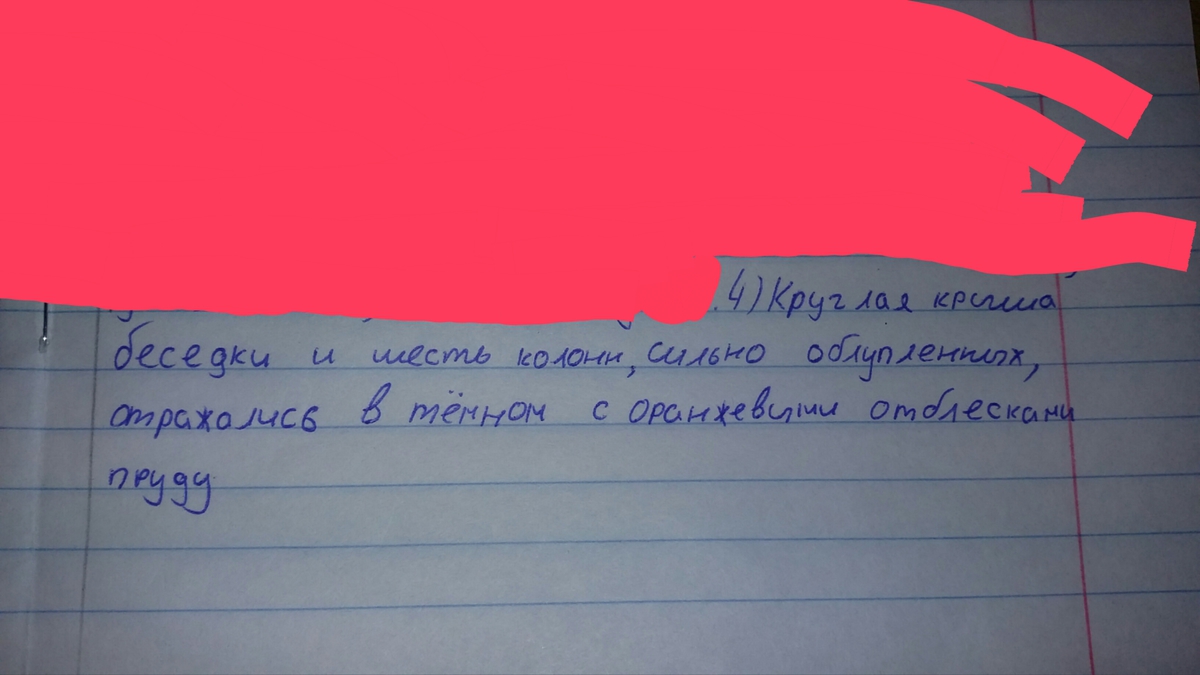 .4) Круглая крыша
беседки и шесть колонн, сильно облупленных,
отражались в тёмном с оранжевыми отблесками
пруду